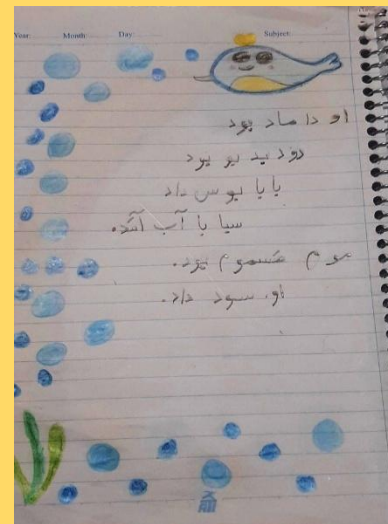 Year: Month: Day: Subject:
او داماد بود
دود بد بو بود
بابا بوس داد
سیا با آب آمد.
موم مسموم بود.
او سود داد.